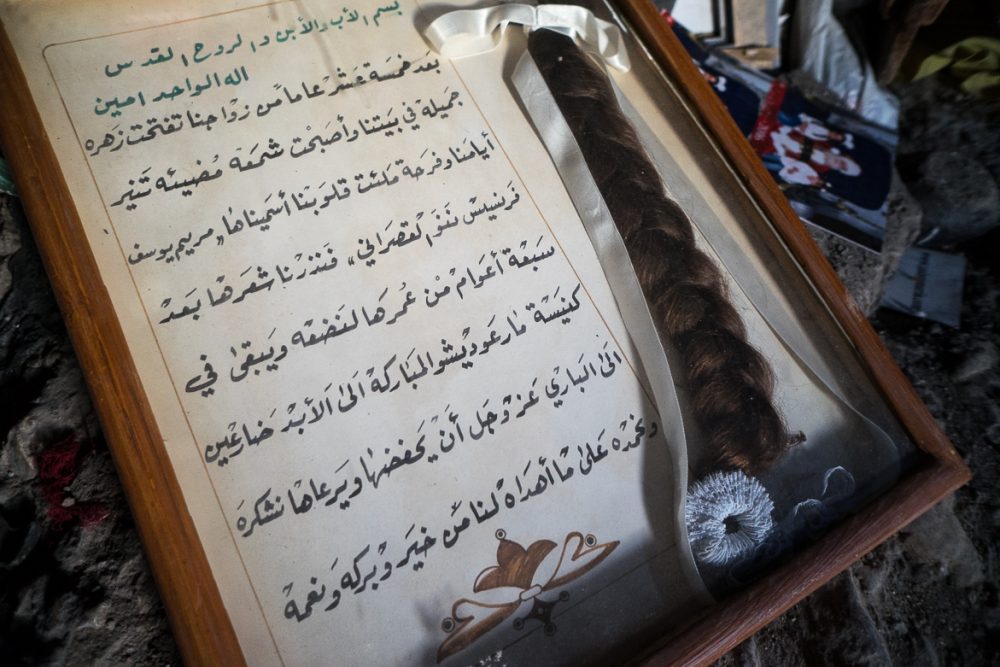 بسم الأب والأبن والروح القدس
اله الواحد امين
بعد خمسَة عَشْر عاماً من زواجنا تفتحت زهره
جميله في بَيتنا وأصبَحْت شمعَة مُضيئه تَنير
أيامنا وفرحَة ملئت قلوبنا أسميناها "مريم يوسف
فرنسيس ننو القصراني" فنذرنا شعرها بَعدْ
سبعَة أعوامْ منْ عُمرها لنضعْه ويَبقىٰ في
كنيسَة مار عوديشو المبَاركة الىٰ الأبدْ ضارعْين
الىٰ البَاريْ عَز وْجَل أنْ يَحفضها ويَرعاها نشكرهَ
ونحمده عَلىٰ مْا أهداه لنا منْ خيَر وبْركه وَنعمْه